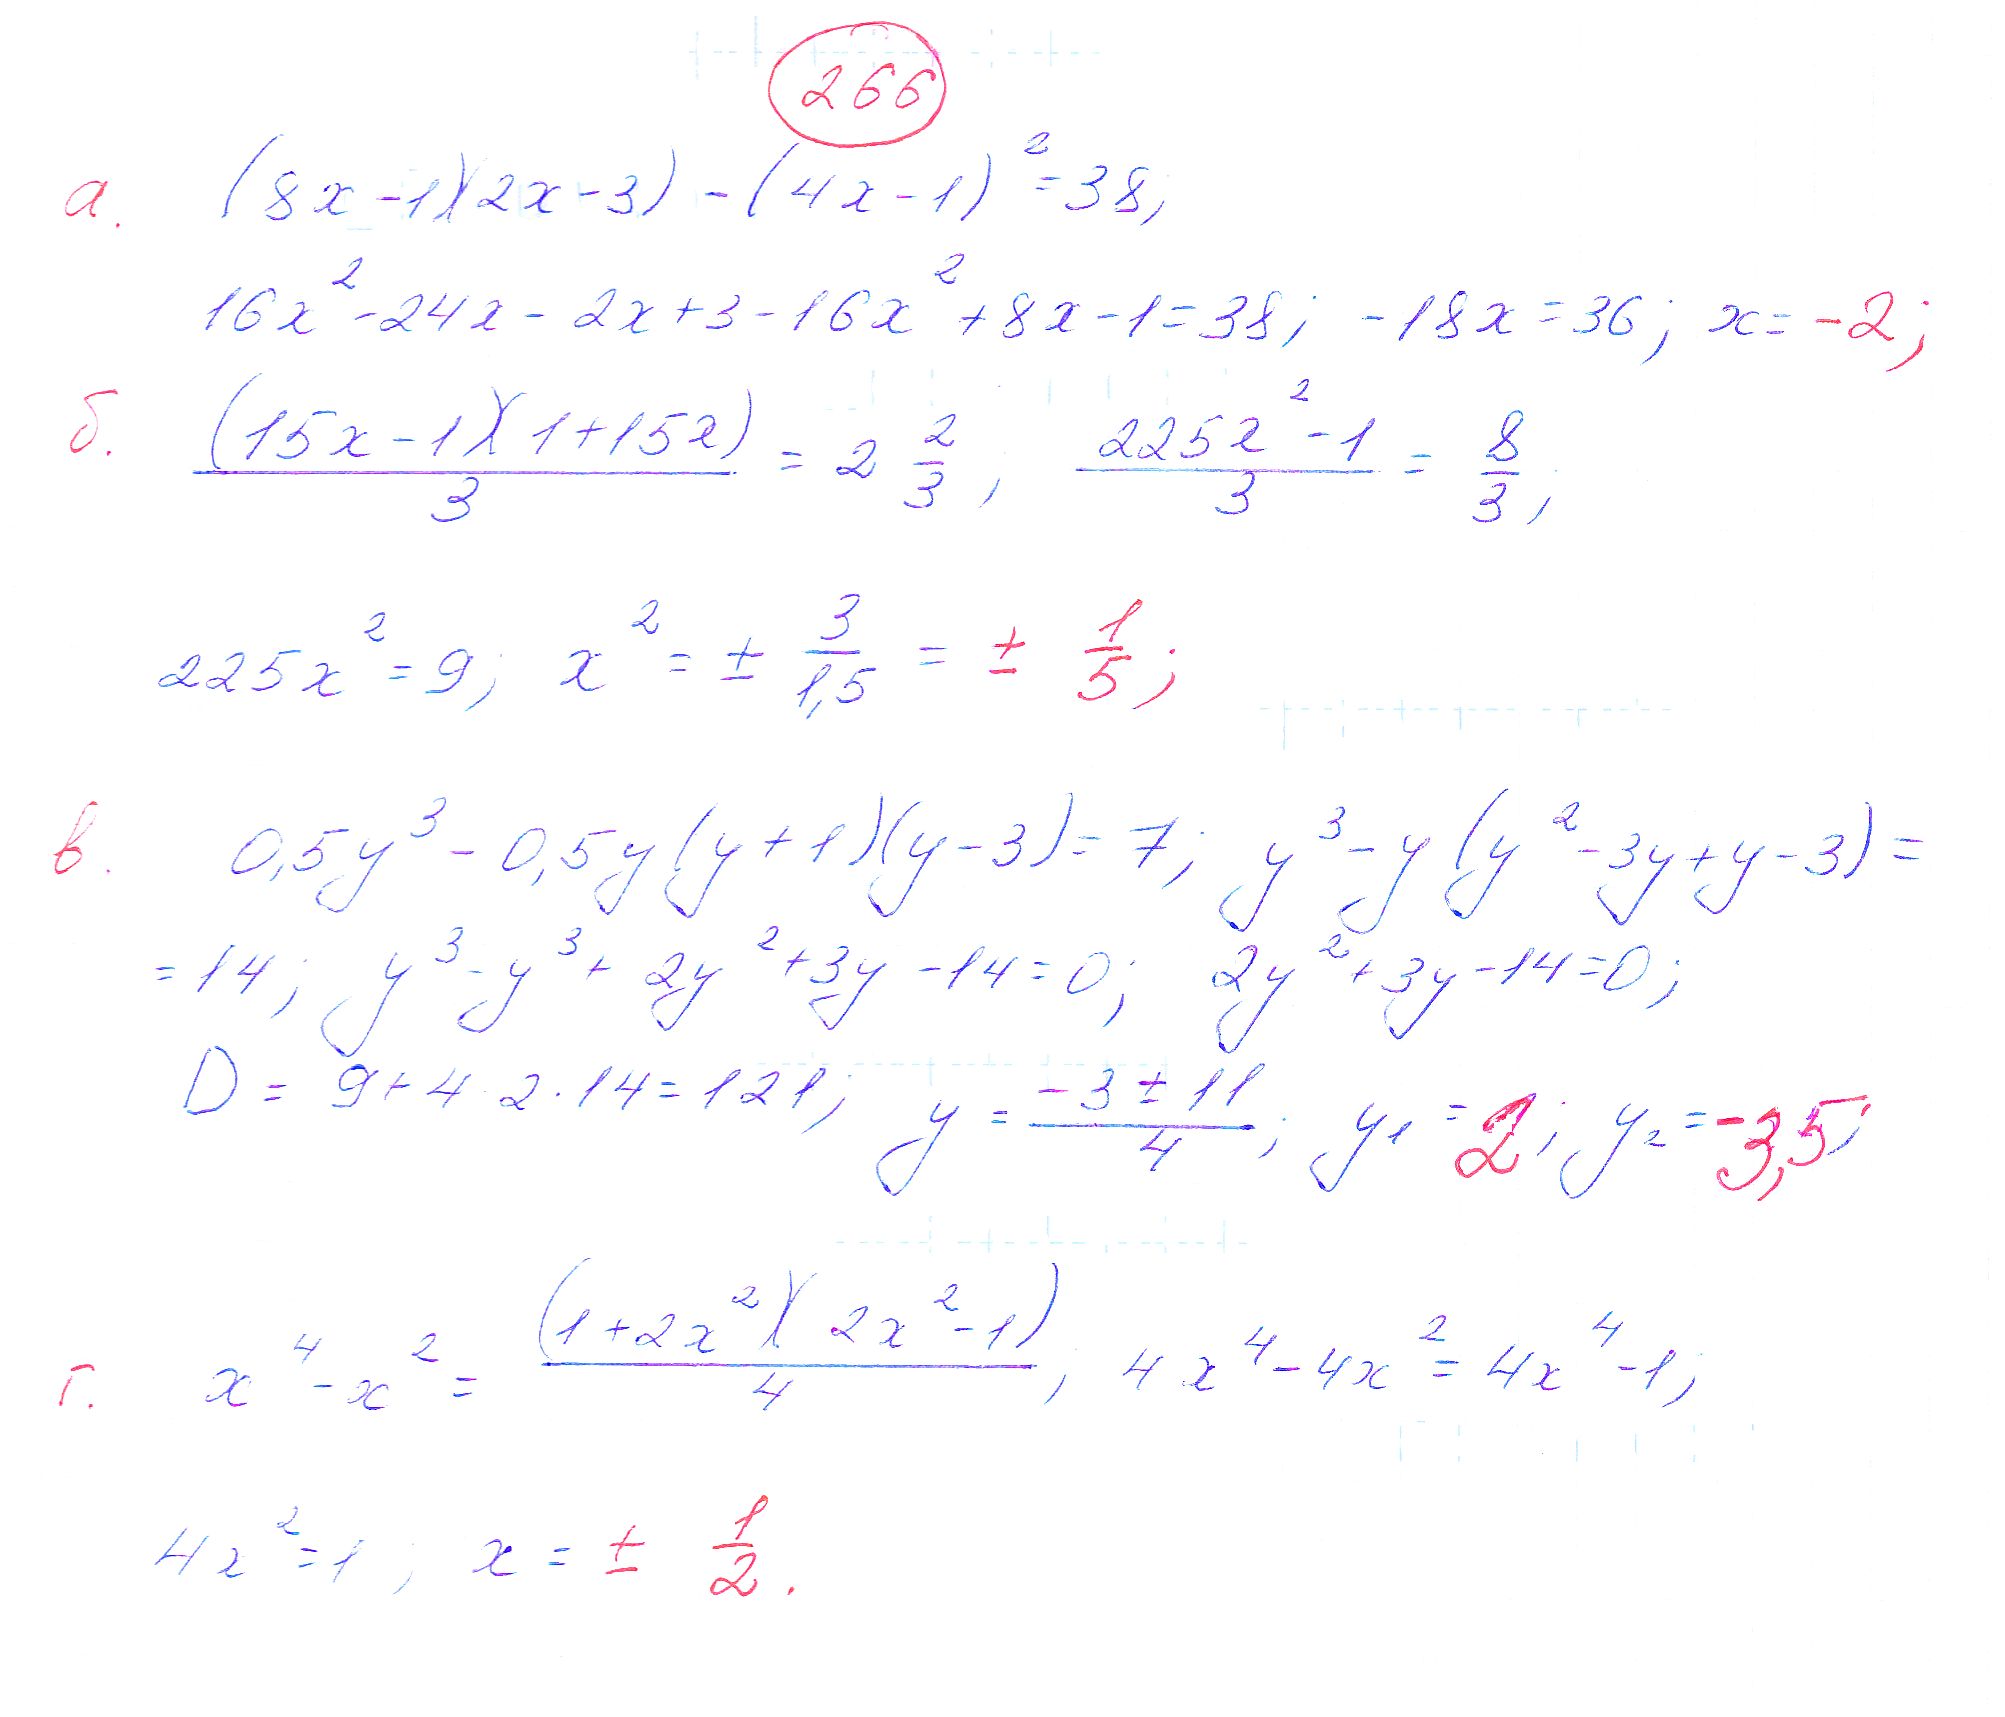 266
а. (8x-1)(2x-3)-(4x-1)²=38;
16x²-24x-2x+3-16x²+8x-1=38; -18x=36; x=-2;
б. (15x-1)(1+15x)/3 = 2 2/3; 225x²-1/3 = 8/3;
225x²=9; x²=± 3/1,5 = ± 1/5;
в. 0,5y³-0,5y(y+1)(y-3)=7; y³-y(y²-3y+y-3)=
=14; y³-y³+2y²+3y-14=0; 2y²+3y-14=0;
D=9+4·2·14=121; y= -3±11/4; y₁=2; y₂=-3,5;
г. x⁴-x²= (1+2x²)(2x²-1)/4; 4x⁴-4x²=4x⁴-1;
4x²=1; x=± 1/2.